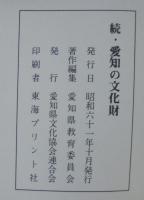 続・愛知の文化財
発行日 昭和六十一年十月発行
著作編集 愛知県教育委員会
発行 愛知県文化財協会連合会
印刷者 東海プリント社